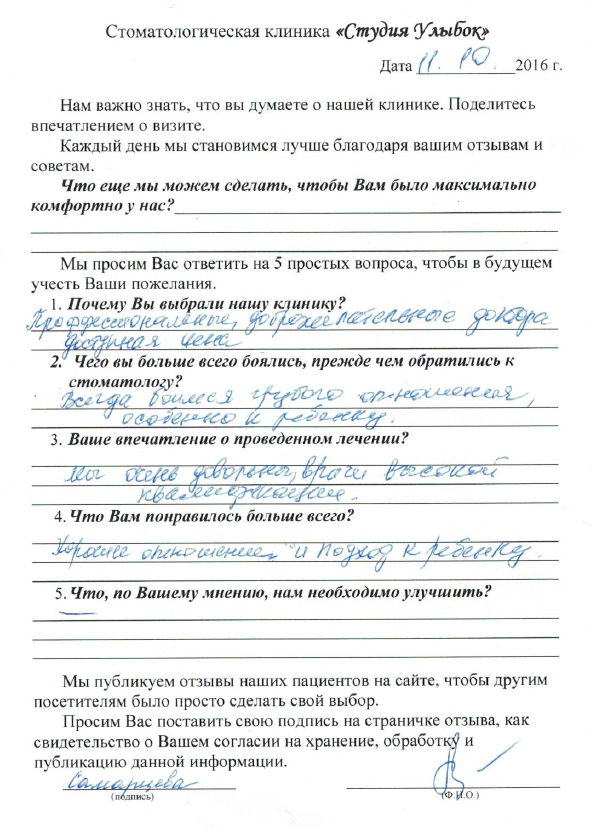 Стоматологическая клиника «Студия Улыбок»
Дата 11.10. 2016 г.
Нам важно знать, что вы думаете о нашей клинике. Поделитесь
впечатлением о визите.
Каждый день мы становимся лучше благодаря вашим отзывам и
советам.
Что еще мы можем сделать, чтобы Вам было максимально
комфортно у нас?
Мы просим Вас ответить на 5 простых вопроса, чтобы в будущем
учесть Ваши пожелания.
1. Почему Вы выбрали нашу клинику?
Профессиональные, доброжелательные доктора
доступная цена
2. Чего вы больше всего боялись, прежде чем обратились к
стоматологу?
Всегда боимся грубого отношения,
особенно к ребенку.
3. Ваше впечатление о проведенном лечении?
Мы очень довольны, врачи высокой
квалификации.
4. Что Вам понравилось больше всего?
Хорошее отношение и подход к ребенку.
5. Что, по Вашему мнению, нам необходимо улучшить?
—
Мы публикуем отзывы наших пациентов на сайте, чтобы другим
посетителям было просто сделать свой выбор.
Просим Вас поставить свою подпись на страничке отзыва, как
свидетельство о Вашем согласии на хранение, обработку и
публикацию данной информации.
Самарцева
(подпись) (Ф.И.О.)